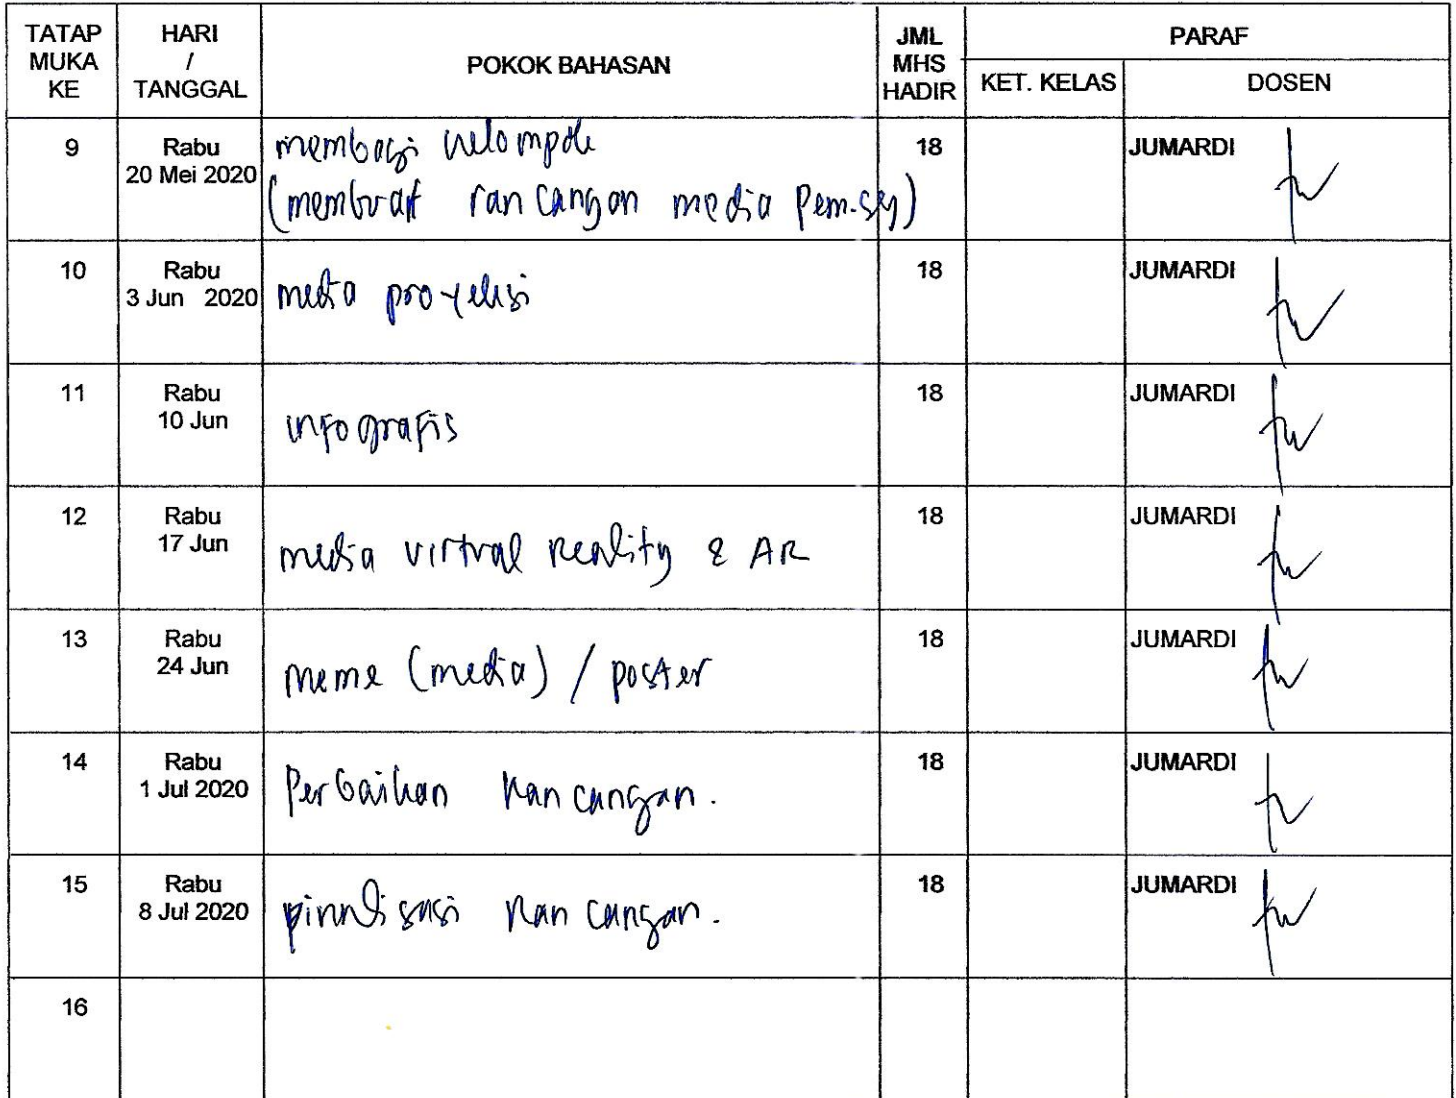 TATAP MUKA KE
HARI / TANGGAL
POKOK BAHASAN
JML MHS HADIR
PARAF
KET. KELAS
DOSEN
9
Rabu
20 Mei 2020
membagi kelompok
(membuat rancangan media Pem.sej)
18
JUMARDI
10
Rabu
3 Jun 2020
media proyeksi
18
JUMARDI
11
Rabu
10 Jun
infografis
18
JUMARDI
12
Rabu
17 Jun
media virtual Reality & AR
18
JUMARDI
13
Rabu
24 Jun
meme (media) / poster
18
JUMARDI
14
Rabu
1 Jul 2020
Perbaikan Rancangan.
18
JUMARDI
15
Rabu
8 Jul 2020
finalisasi Rancangan.
18
JUMARDI
16